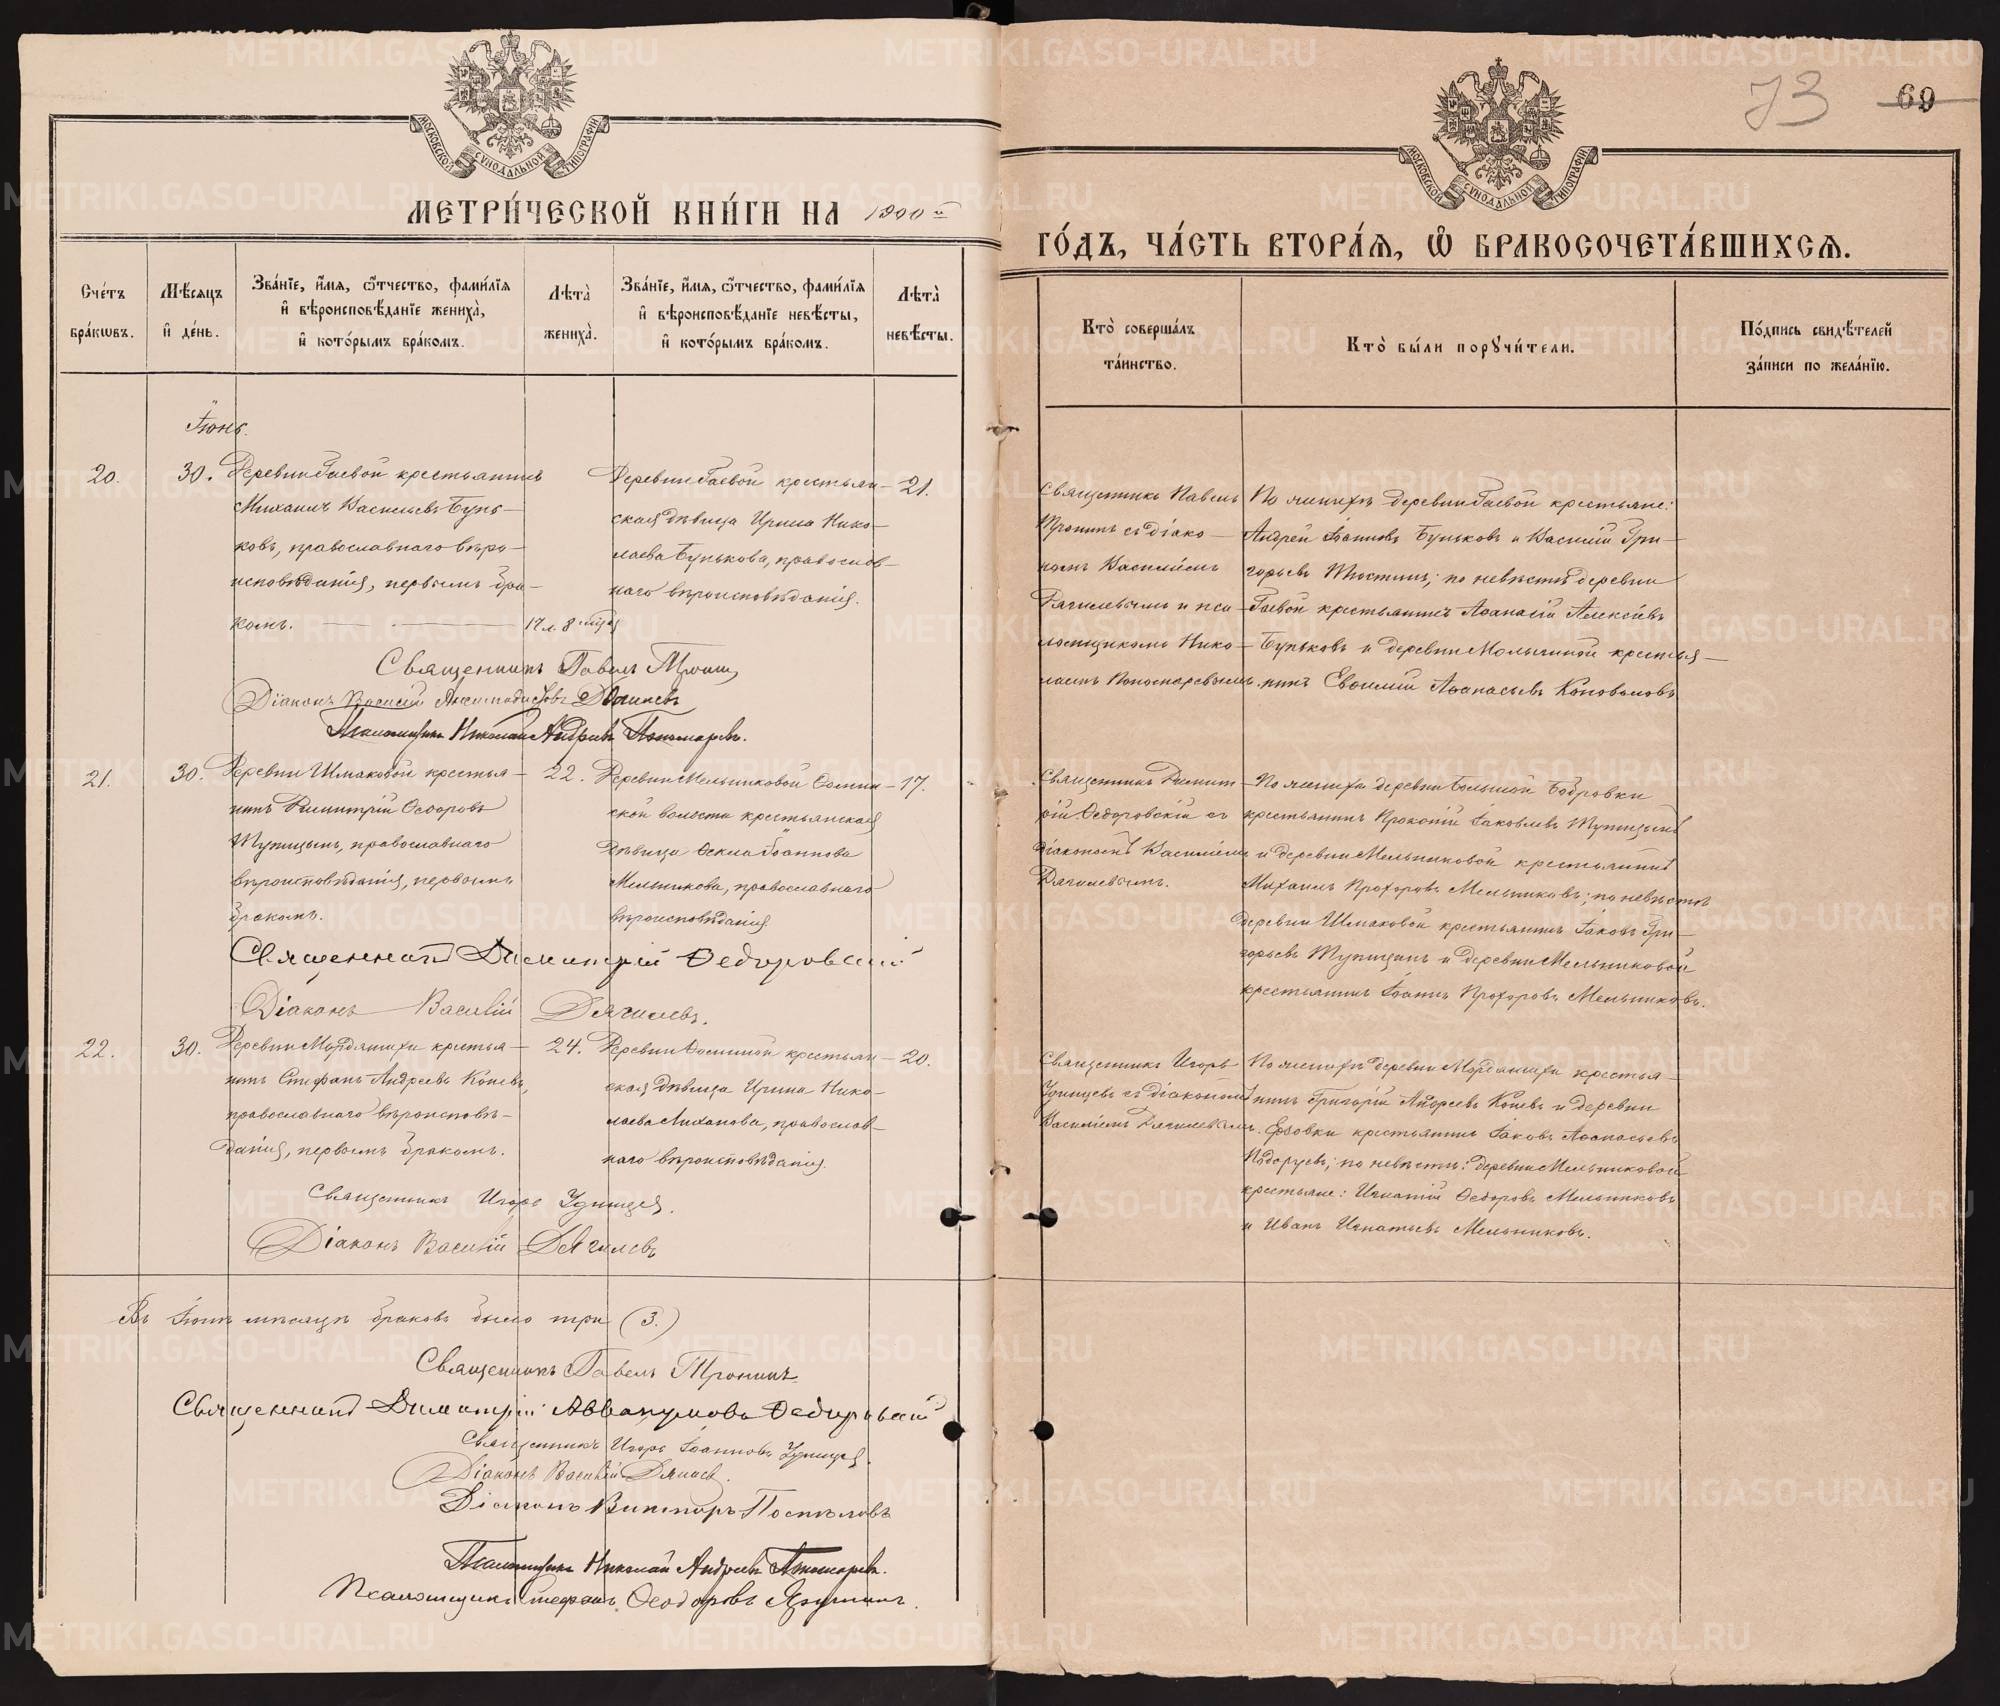 МЕТРИ́ЧЕСКОЙ КНИ́ГИ НА 1900 й
ГО́ДЪ, ЧА́СТЬ ВТОРА́Я, Ѡ БРАКОСОЧЕТА́ВШИХСЯ.
73
69
МОСКОВСКОЙ СѴНОДАЛЬНОЙ ТИПОГРАФІИ
МОСКОВСКОЙ СѴНОДАЛЬНОЙ ТИПОГРАФІИ
Сче́тъ бра́кѡвъ.
Мѣ́сяцъ и́ де́нь.
Зва́нїе, и́мя, ѻ҆́тчество, фами́лїя и҆ вѣроисповѣ́данїе жениха̀, и҆ кото́рымъ бра́комъ.
Лѣта̀ жениха̀.
Зва́нїе, и́мя, ѻ҆́тчество, фами́лїя и҆ вѣроисповѣ́данїе невѣ́сты, и҆ кото́рымъ бра́комъ.
Лѣта̀ невѣ́сты.
Кто̀ соверша́лъ та́инство.
Кто̀ бы́ли порꙋчи́тели.
По́дпись свидѣ́телей за́писи по жела́нїю.
Іюнь.
20.
30.
Деревни Гаевой крестьянинъ
Михаилъ Васильевъ Бунь-
ковъ, православнаго вѣро-
исповѣданія, первымъ бра-
комъ.
17 л. 8 мѣс
Деревни Гаевой крестьян-
ская дѣвица Ирина Нико-
лаева Бунькова, православ-
наго вѣроисповѣданія.
21.
Священникъ Павелъ
Тронинъ съ діако-
номъ Василіемъ
Дягилевымъ и пса-
ломщикомъ Нико-
лаемъ Пономаревымъ.
По женихѣ деревни Гаевой крестьяне:
Андрей Іоанновъ Буньковъ и Василій Гри-
горьевъ; по невѣстѣ деревни
Гаевой крестьянинъ Аѳанасій Алексѣевъ
Буньковъ и деревни крестья-
нинъ Евѳимій Аѳанасьевъ Коноваловъ
Священникъ Павелъ Тронинъ
Діаконъ Василій Дягилевъ
Псаломщикъ Николай Андреевъ Пономаревъ.
21.
30.
Деревни Шмаковой крестья-
нинъ Димитрій Ѳеодоровъ
Тупицынъ, православнаго
вѣроисповѣданія, первымъ
бракомъ.
22.
Деревни Мельниковой
ской волости крестьянская
дѣвица Ѳекла Іоаннова
Мельникова, православнаго
вѣроисповѣданія
17.
Священникъ Димит-
рій Ѳедоровскій съ
діакономъ Василіемъ
Дягилевымъ.
По женихѣ деревни Большой Бобровки
крестьянинъ Прокопій Іаковлевъ Тупицынъ
и деревни Мельниковой крестьянинъ
Михаилъ Прохоровъ Мельниковъ; по невѣстѣ
деревни Шмаковой крестьянинъ Іаковъ Гри-
горьевъ Тупицынъ и деревни Мельниковой
крестьянинъ Іоаннъ Прохоровъ Мельниковъ.
Священникъ Димитрій Ѳедоровскій
Діаконъ Василій Дягилевъ.
22.
30.
Деревни крестья-
нинъ Стефанъ Андреевъ Коневъ,
православнаго вѣроисповѣ-
данія, первымъ бракомъ.
24.
Деревни Ѳоминой крестьян-
ская дѣвица Ирина Нико-
лаева Лиханова, православ-
наго вѣроисповѣданія.
20.
Священникъ Игорь
Удинцевъ съ діакономъ
Василіемъ Дягилевымъ.
По женихѣ деревни крестья-
нинъ Григорій Андреевъ Коневъ и деревни
крестьянинъ Іаковъ Аѳанасьевъ
Подоруевъ; по невѣстѣ: деревни Мельниковой
крестьяне: Игнатій Ѳедоровъ Мельниковъ
и Иванъ Игнатьевъ Мельниковъ.
Священникъ Игорь Удинцев.
Діаконъ Василій Дягилевъ
Въ Іюнѣ мѣсяцѣ браковъ было три (3.)
Священникъ Павелъ Тронинъ
Священникъ Димитрій Аввакумовъ Ѳедоровскій
Священникъ Игорь Іоанновъ Удинцев.
Діаконъ Василій Дягилев.
Діаконъ Викторъ Поспѣловъ
Псаломщикъ Николай Андреевъ Пономаревъ.
Псаломщикъ Стефанъ Ѳеодоровъ
METRIKI.GASO-URAL.RU